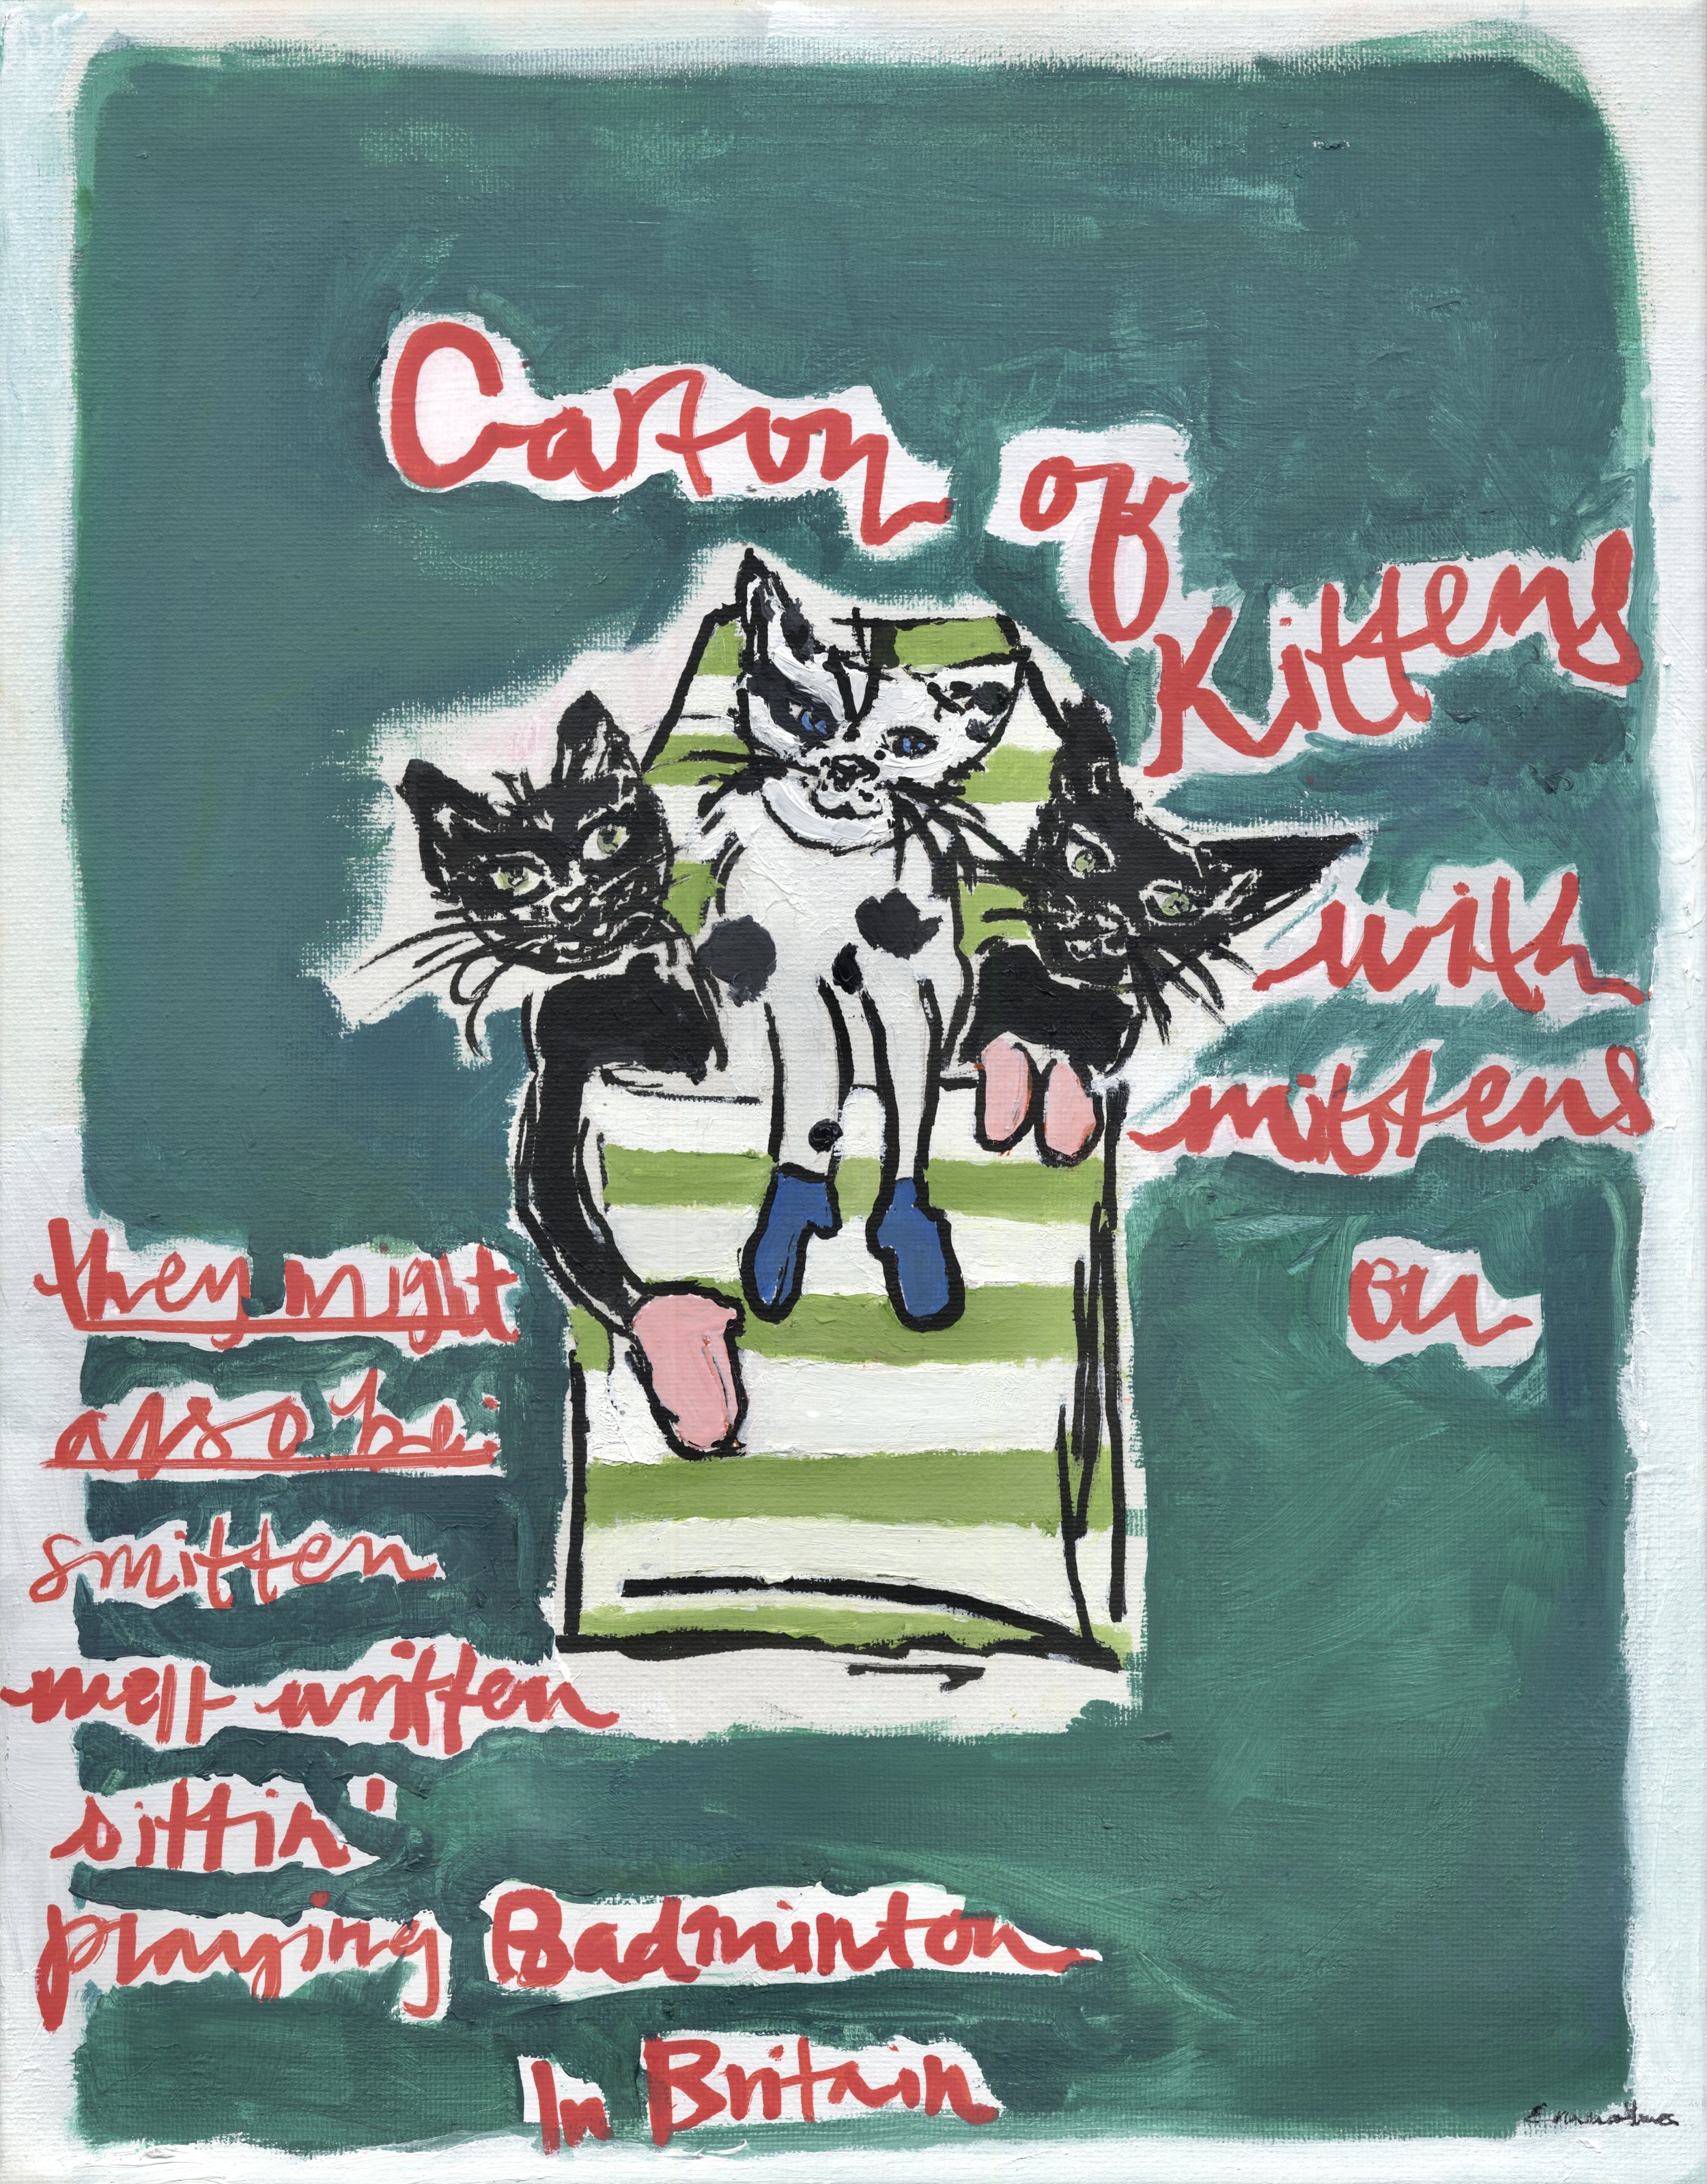 Carton of
Kittens
with
mittens
on
they might
also be
smitten
well written
sittin'
playing Badminton
In Britain